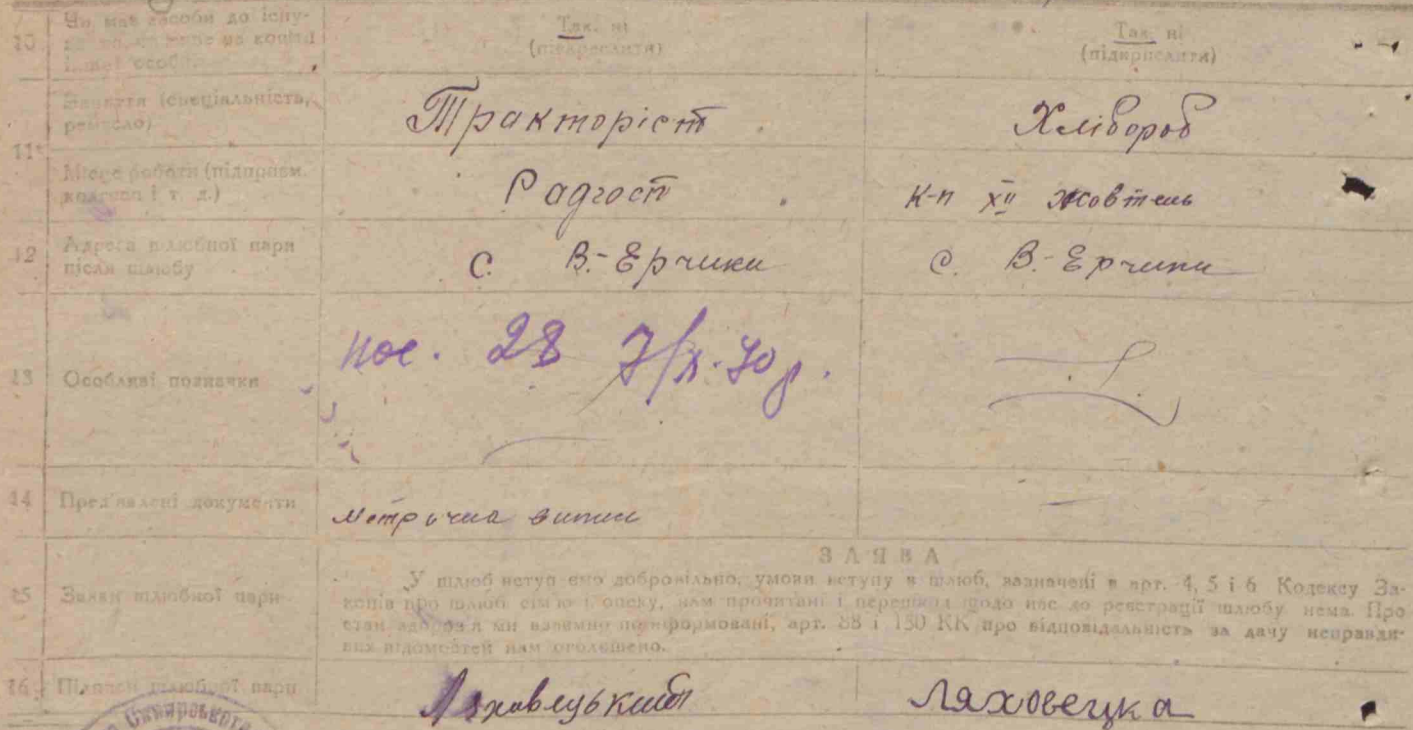 10 Чи має засоби до існу-
на коштi
іншої особи
Так, ні
(підкреслити)
Так, ні
(підкреслити)
11
Заняття (спеціальність,
ремесло)
Тракторіст
Хлібороб
Місце роботи (підприєм.
колгосп і т. д.)
Радгост
к-п XII жовтень
12 Адреса шлюбної пари
після шлюбу
с. В.-Ерчики
с. В.-Ерчики
13 Особливі позначки
28 7/X-40 р.
14 Пред'явлені документи
Метрична випис
—
15 Заява шлюбної пари
ЗАЯВА
У шлюб вступаємо добровільно, умови вступу в шлюб, зазначені в арт. 4, 5 і 6 Кодексу За-
конів про шлюб сім'ю і опеку, нам прочитані і перешкод щодо нас до реєстрації шлюбу нема. Про
стан здоров'я ми взаємно поінформовані, арт. 88 і 130 КК про відповідальність за дачу неправди-
вих відомостей нам оголошено.
16 Підписи шлюбної пари
Ляховецький
Ляховецка
Сквирського